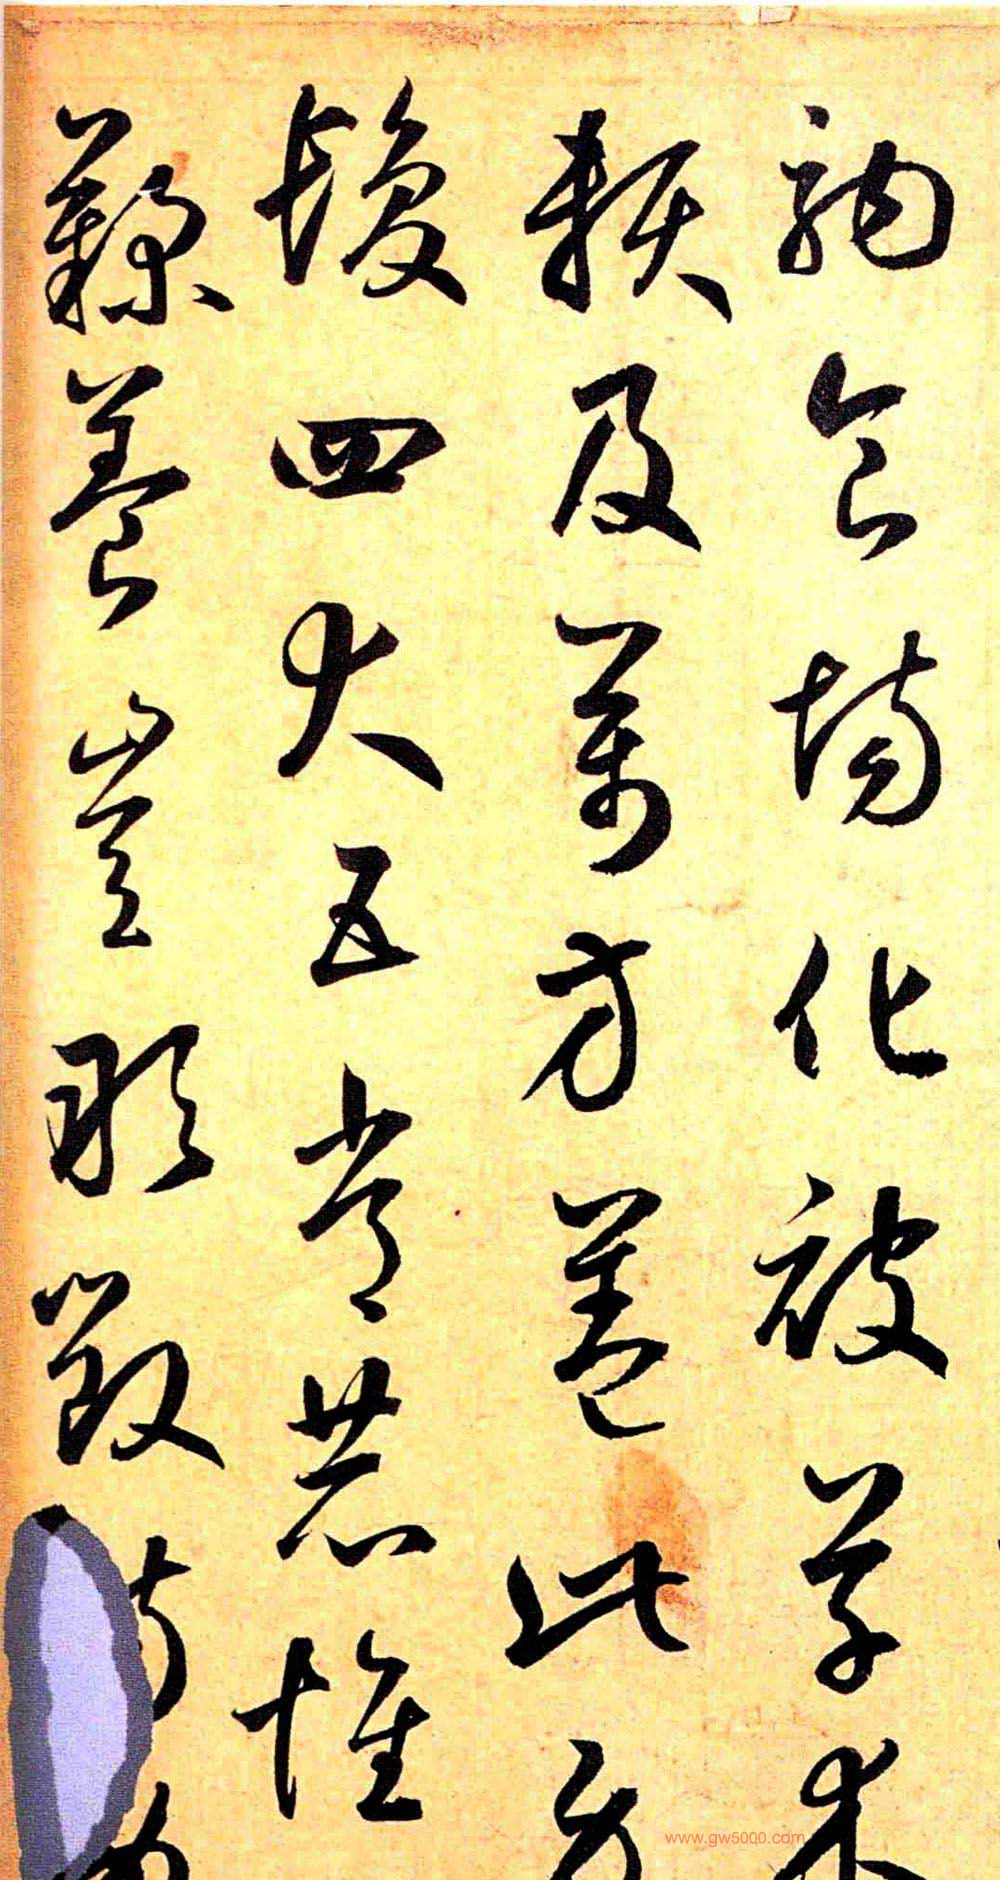 駒食場化被草木
賴及萬方蓋此身
髮四大五常恭惟
鞠養豈敢毀
www.gw5000.com